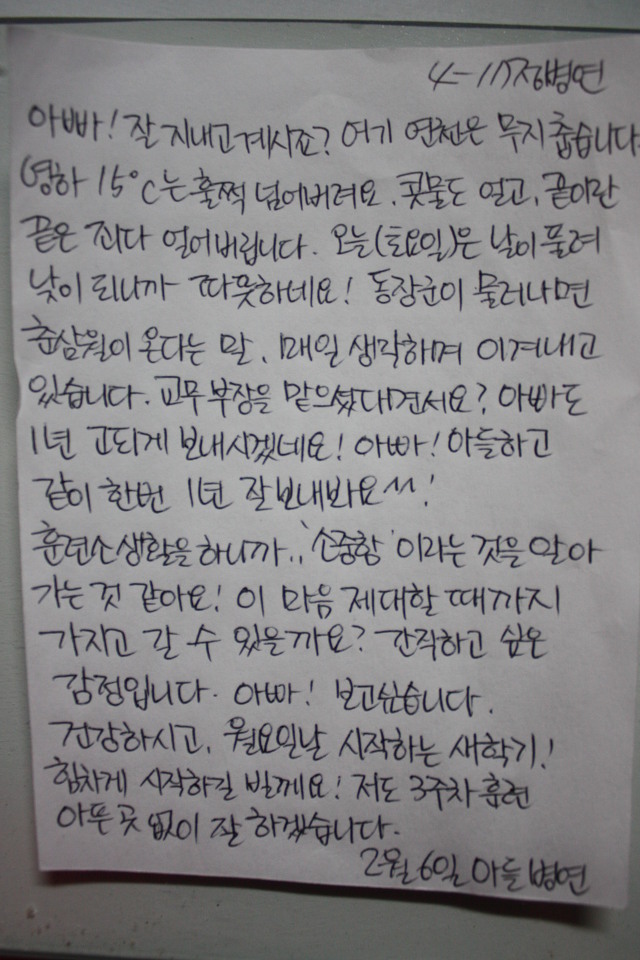 4-117 정병연
아빠! 잘 지내고 계시죠? 여기 연천은 무지 춥습니다
영하 15°C는 훌쩍 넘어버려요. 콧물도 얼고, 끝이란
끝은 죄다 얼어버립니다. 오늘(토요일)은 날이 풀려
낮이 되니까 따뜻하네요! 동장군이 물러나면
춘삼월이 온다는 말, 매일 생각하며 이겨내고
있습니다. 교무부장을 맡으셨다면서요? 아빠도
1년 고되게 보내시겠네요! 아빠! 아들하고
같이 한번 1년 잘 보내봐요^^!
훈련소생활을 하니까.. '소중함'이라는 것을 알아
가는 것 같아요! 이 마음 제대할 때까지
가지고 갈 수 있을까요? 간직하고 싶은
감정입니다. 아빠! 보고싶습니다.
건강하시고, 월요일날 시작하는 새학기!
힘차게 시작하길 빌께요! 저도 3주차 훈련
아픈 곳 없이 잘 하겠습니다.
2월 6일 아들 병연